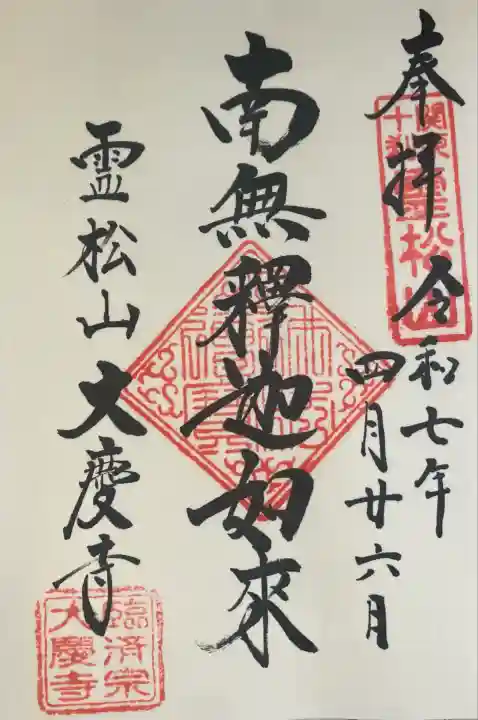 奉拝 令和七年
四月廿六日
關東
十刹
霊松山
南無釋迦如來
霊松山大慶寺
臨済宗
大慶寺